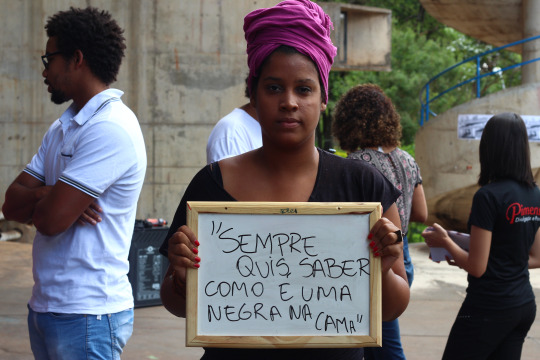 "SEMPRE
QUIS SABER
COMO E UMA
NEGRA NA CAMA"